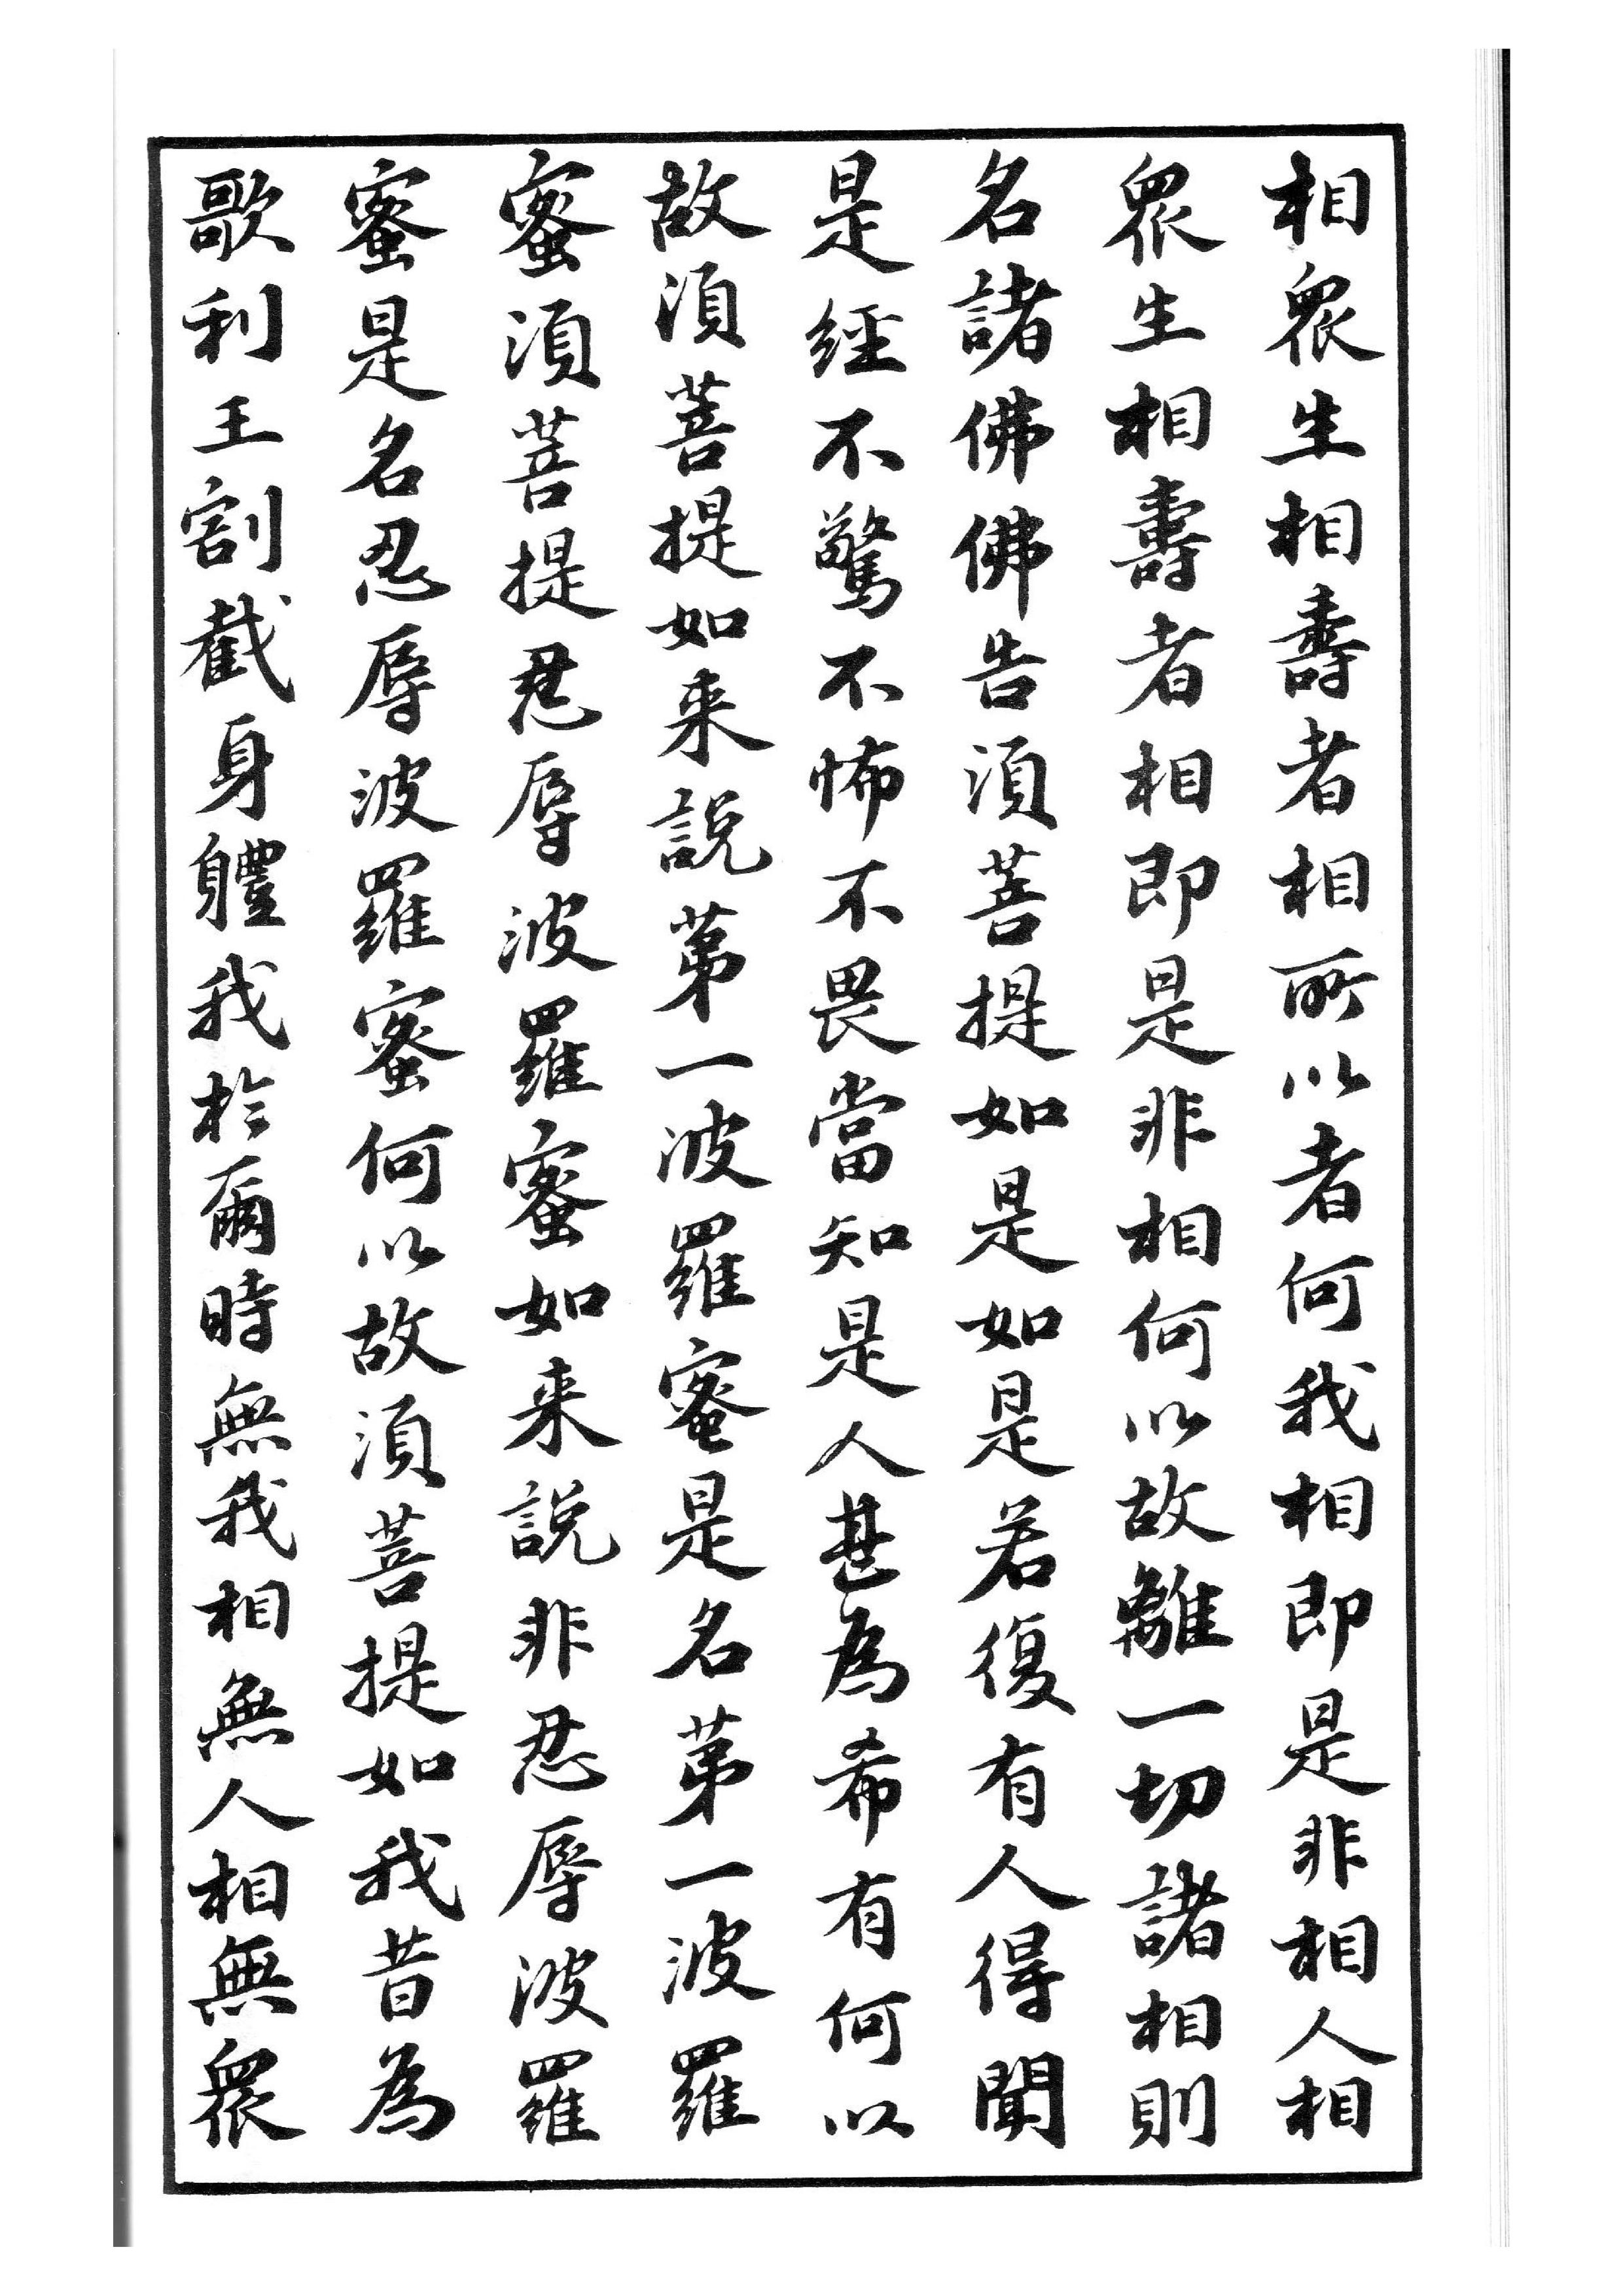 相眾生相壽者相所以者何我相即是非相人相
眾生相壽者相即是非相何以故離一切諸相則
名諸佛佛告須菩提如是如是若復有人得聞
是經不驚不怖不畏當知是人甚為希有何以
故須菩提如来說第一波羅蜜是名第一波羅
蜜須菩提忍辱波羅蜜如来說非忍辱波羅
蜜是名忍辱波羅蜜何以故須菩提如我昔為
歌利王割截身軆我於爾時無我相無人相無眾